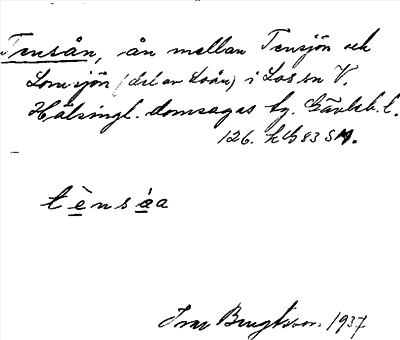 Tensån, ån mellan Tensjön och
Lomsjön (del av Loån) i Los sn V.
Hälsingl. domsagas tg. Gävleb. l.
126. kb 83 SM.
tènsåa
Ivar Bengtsson. 1937